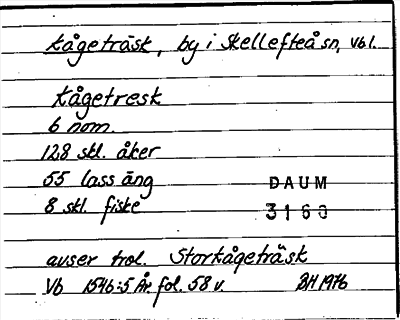 Kågeträsk, by i Skellefteå sn, Vbl.
Kågetresk
6 nom.
128 skl. åker
55 lass äng
8 skl. fiske
DAUM
3160
avser trol. Storkågeträsk
Vb 1546:5 År fol. 58 v. BH 1976